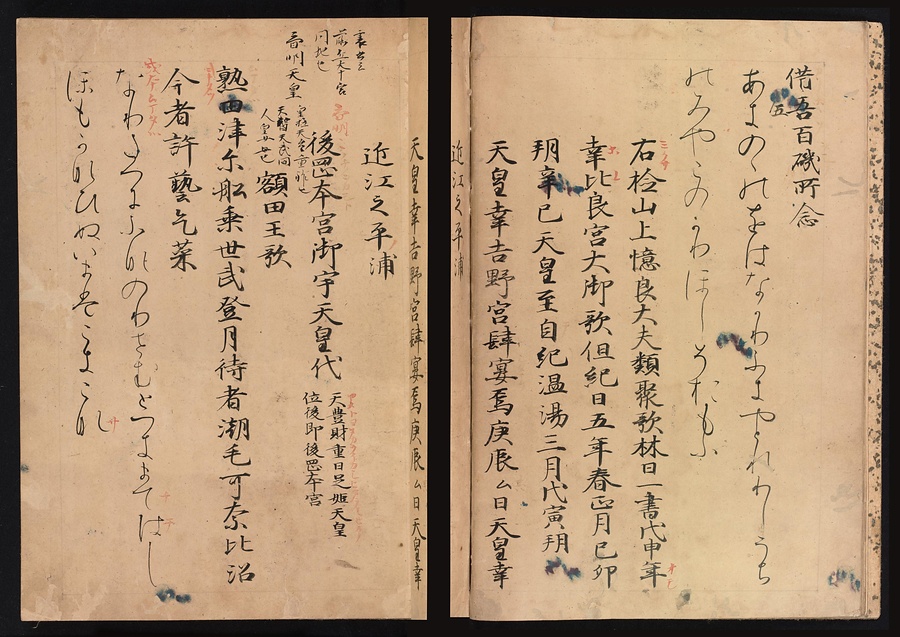 借吾百礒所念
五
あきのゝのをはなかりふきやとれりしうち
のみやこのかりほしそおもふ
右捡山上憶良大夫類聚歌林曰一書戊申年
幸比良宮大御歌但紀曰五年春正月己卯
朔辛巳天皇至自紀温湯三月戊寅朔
天皇幸吉野宮肆宴焉庚辰ム日天皇幸
近江之平浦
天皇幸吉野宮肆宴焉庚辰ム日天皇幸
近江之平浦
後岡本宮御宇天皇代
天豊財重日足姫天皇
位後即後岡本宮
斉明天皇
額田王歌
熟田津尓船乗世武登月待者潮毛可奈比沼
今者許藝乞菜
なりたつにふなのりせむとつきまてはし
ほもかなひぬいまはこきこな